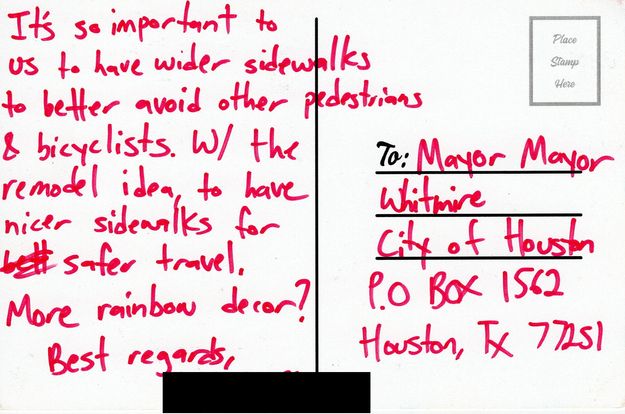 It's so important to
us to have wider sidewalks
to better avoid other pedestrians
& bicyclists. W/ the
remodel idea, to have
nicer sidewalks for
safer travel.
More rainbow decor?
Best regards,
Place
Stamp
Here
To: Mayor Mayor
Whitmire
City of Houston
P.O Box 1562
Houston, Tx 77251